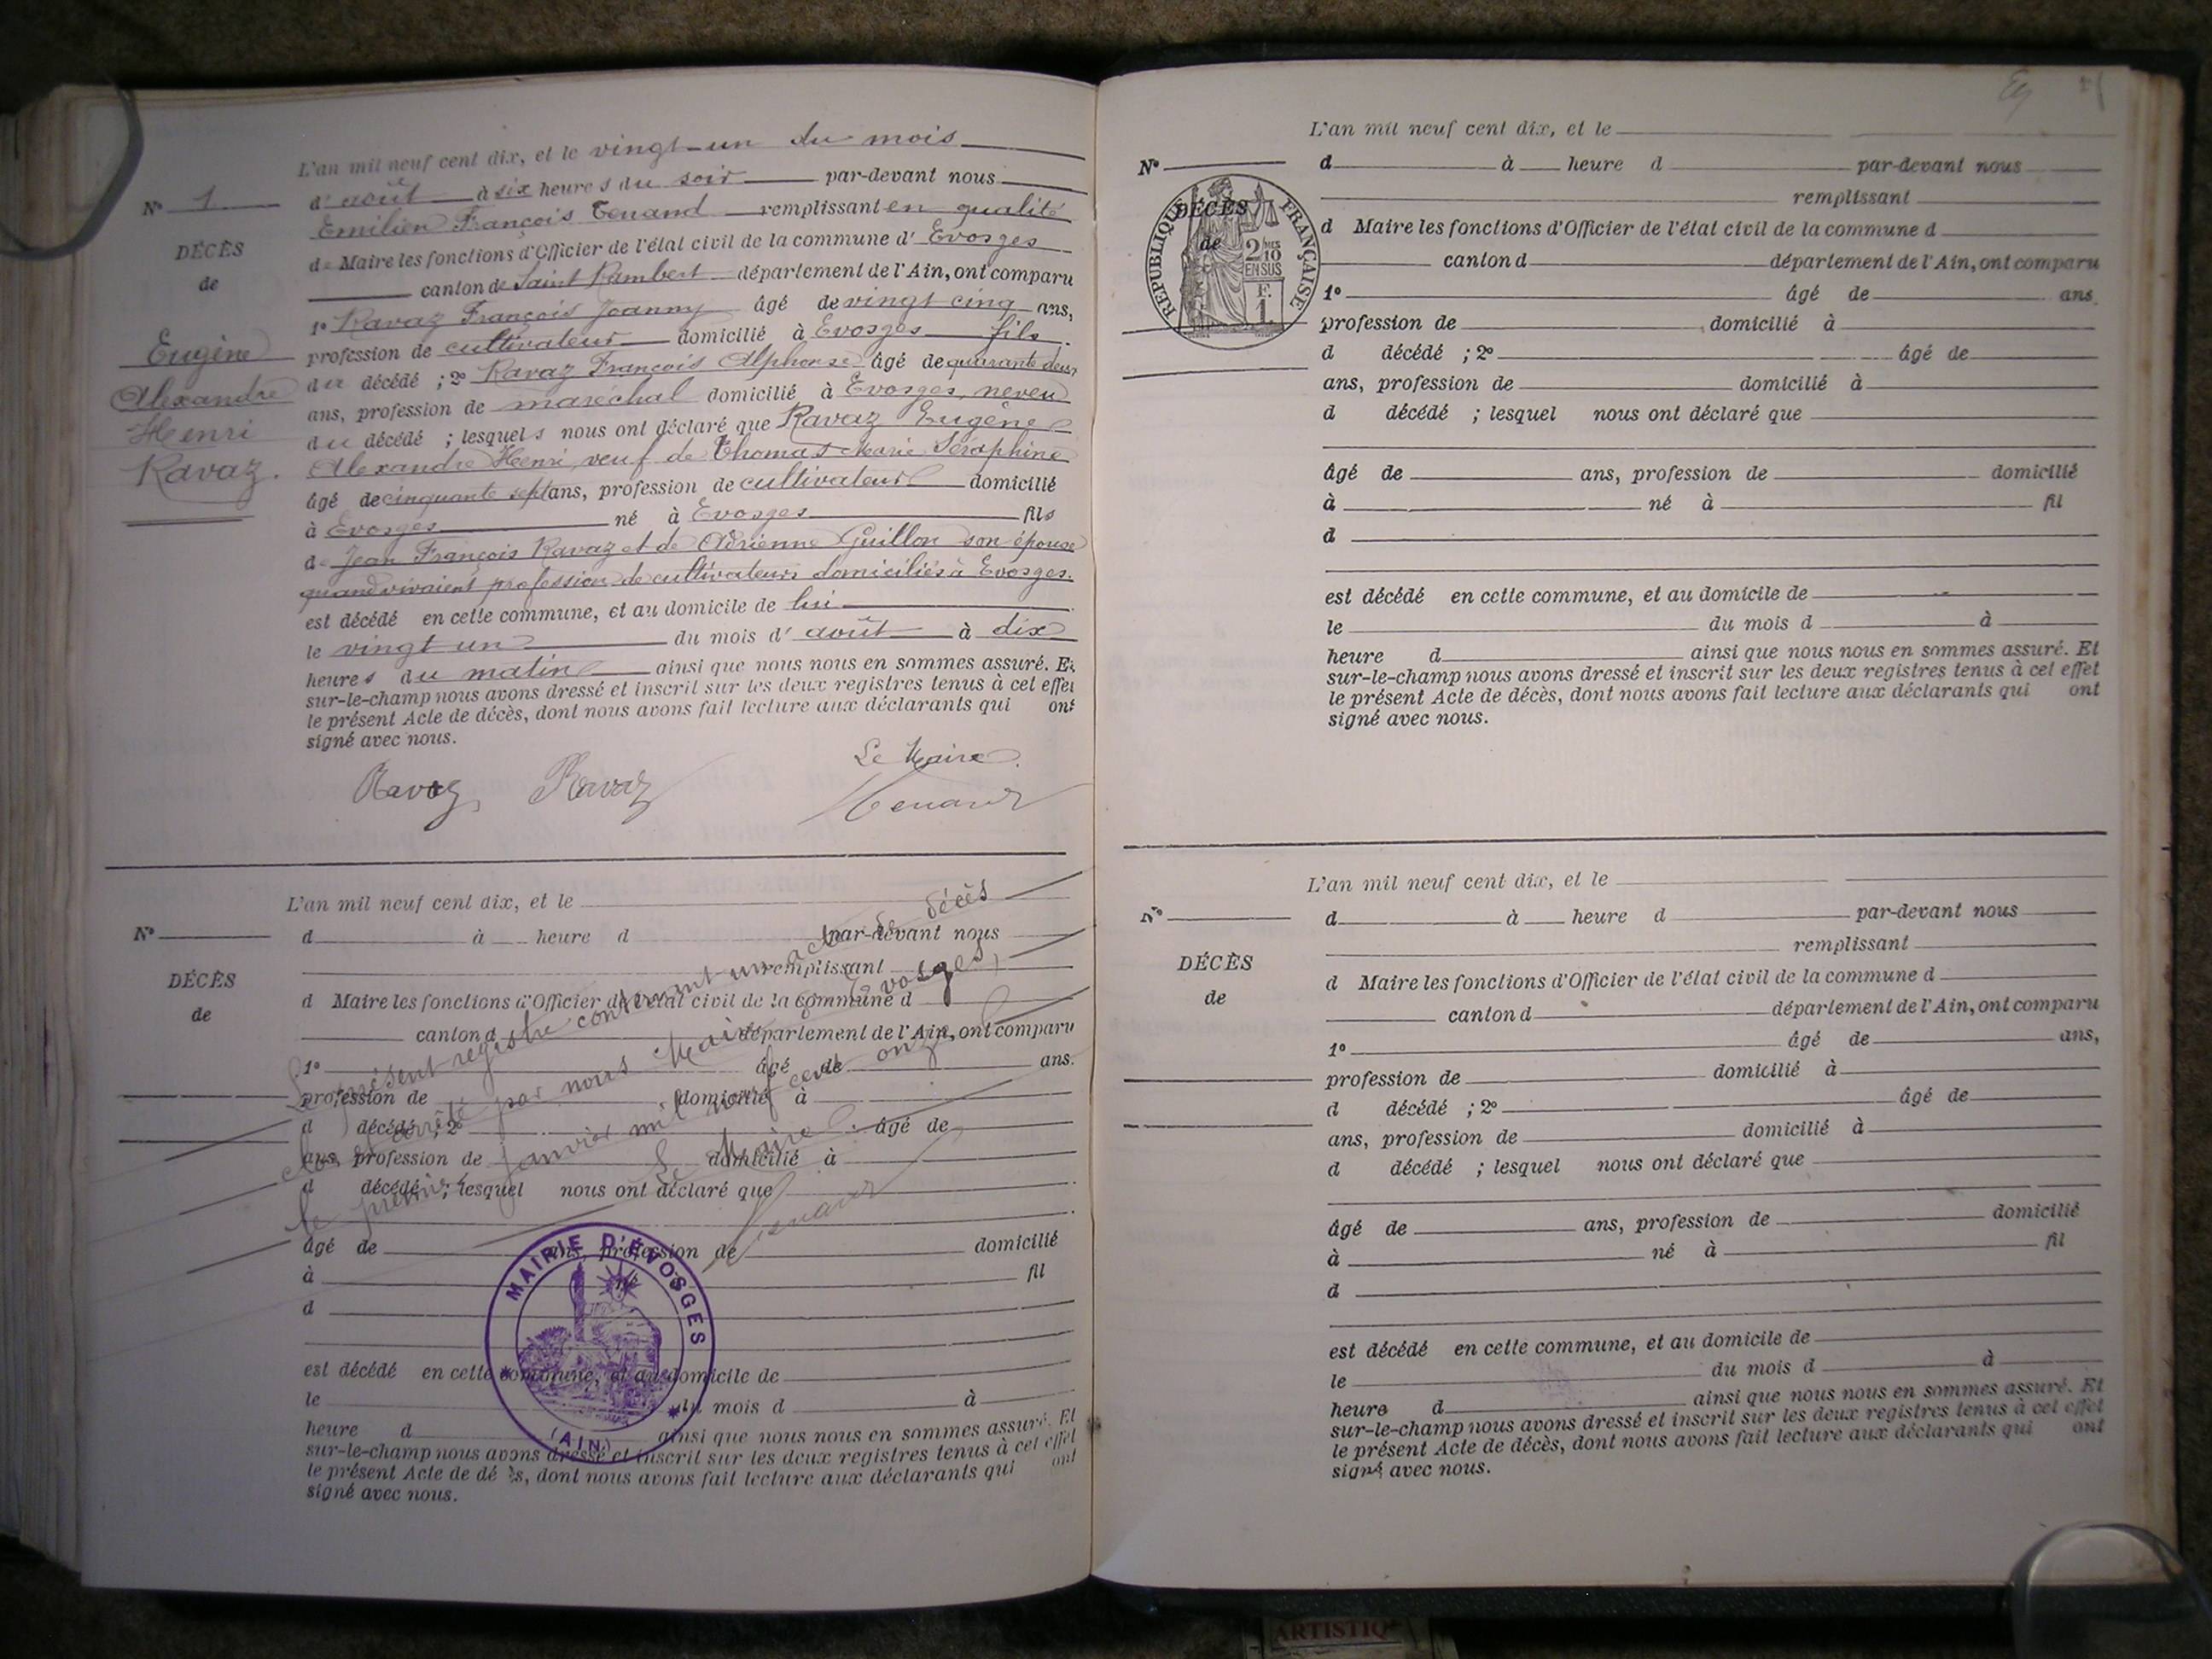 L'an mil neuf cent dix, et le vingt-un du mois
N° 1 d'août à six heures du soir par-devant nous
Emilien François Tenand remplissant en qualité
DÉCÈS
de
de Maire les fonctions d'Officier de l'état civil de la commune d'Evosges
canton de Saint Rambert département de l'Ain, ont comparu
1° Ravaz François Joanny âgé de vingt cinq ans,
profession de cultivateur domicilié à Evosges fils
du décédé ; 2° Ravaz François Alphonse âgé de quarante deux
ans, profession de maréchal domicilié à Evosges, neveu
du décédé ; lesquels nous ont déclaré que Ravaz Eugène
Alexandre Henri, veuf de Thomas Marie Séraphine
âgé de cinquante sept ans, profession de cultivateur domicilié
à Evosges né à Evosges fils
de Jean François Ravaz et de Adrienne Guillon son épouse
quand vivaient profession de cultivateurs domiciliés à Evosges.
est décédé en cette commune, et au domicile de lui
le vingt un du mois d'août à dix
heures du matin ainsi que nous nous en sommes assuré. Et
sur-le-champ nous avons dressé et inscrit sur les deux registres tenus à cet effet
le présent Acte de décès, dont nous avons fait lecture aux déclarants qui ont
signé avec nous.
Eugène
Alexandre
Henri
Ravaz.
Le Maire.
Ravaz, Ravaz Tenand
L'an mil neuf cent dix, et le
N° d à heure d par-devant nous
remplissant
DÉCÈS
de
d Maire les fonctions d'Officier de l'état civil de la commune d
canton d département de l'Ain, ont comparu
1° âgé de ans.
profession de domicilié à
d décédé ; 2° âgé de
ans, profession de domicilié à
d décédé ; lesquel nous ont déclaré que
âgé de ans, profession de domicilié
à né à fil
d
est décédé en cette commune, et au domicile de
le du mois d à
heure d ainsi que nous nous en sommes assuré. Et
sur-le-champ nous avons dressé et inscrit sur les deux registres tenus à cet effet
le présent Acte de décès, dont nous avons fait lecture aux déclarants qui ont
signé avec nous.
Le présent registre contenant un acte de décès
clos et arrêté par nous Maire d'Evosges,
le premier janvier mil neuf cent onze
Le Maire
Tenand
MAIRIE D'ÉVOSGES
(AIN)
L'an mil neuf cent dix, et le
N° d à heure d par-devant nous
remplissant
DÉCÈS
de
RÉPUBLIQUE FRANÇAISE
2/10 MES
EN SUS
F.
1.
d Maire les fonctions d'Officier de l'état civil de la commune d
canton d département de l'Ain, ont comparu
1° âgé de ans.
profession de domicilié à
d décédé ; 2° âgé de
ans, profession de domicilié à
d décédé ; lesquel nous ont déclaré que
âgé de ans, profession de domicilié
à né à fil
d
est décédé en cette commune, et au domicile de
le du mois d à
heure d ainsi que nous nous en sommes assuré. Et
sur-le-champ nous avons dressé et inscrit sur les deux registres tenus à cet effet
le présent Acte de décès, dont nous avons fait lecture aux déclarants qui ont
signé avec nous.
L'an mil neuf cent dix, et le
N° d à heure d par-devant nous
remplissant
DÉCÈS
de
d Maire les fonctions d'Officier de l'état civil de la commune d
canton d département de l'Ain, ont comparu
1° âgé de ans,
profession de domicilié à
d décédé ; 2° âgé de
ans, profession de domicilié à
d décédé ; lesquel nous ont déclaré que
âgé de ans, profession de domicilié
à né à fil
d
est décédé en cette commune, et au domicile de
le du mois d à
heure d ainsi que nous nous en sommes assuré. Et
sur-le-champ nous avons dressé et inscrit sur les deux registres tenus à cet effet
le présent Acte de décès, dont nous avons fait lecture aux déclarants qui ont
signé avec nous.
ARTISTIQ